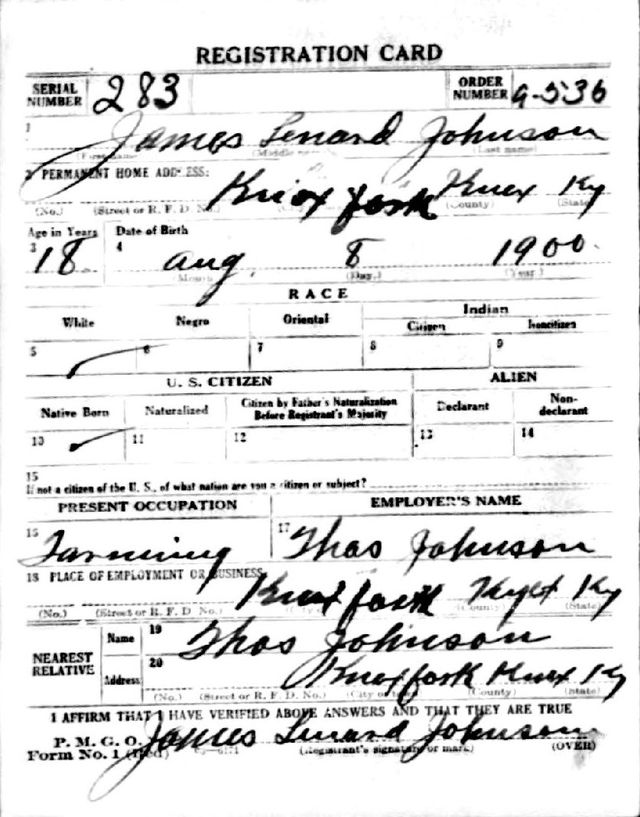 REGISTRATION CARD
SERIAL NUMBER 283 ORDER NUMBER A-536
1 James Lenard Johnson
(First name) (Middle name) (Last name)
2 PERMANENT HOME ADDRESS:
Knox fork Knox Ky
(No.) (Street or R. F. D. No.) (County) (State)
Age in Years Date of Birth
3 18 4 Aug. 8 1900
(Month) (Day.) (Year.)
RACE
White Negro Oriental Indian
Citizen Noncitizen
5 6 7 8 9
U. S. CITIZEN ALIEN
Native Born Naturalized Citizen by Father's Naturalization Before Registrant's Majority Declarant Non-declarant
10 11 12 13 14
15
If not a citizen of the U. S., of what nation are you a citizen or subject?
PRESENT OCCUPATION EMPLOYER'S NAME
16 Farming 17 Thos Johnson
18 PLACE OF EMPLOYMENT OR BUSINESS:
Knox fork Ky
(No.) (Street or R. F. D. No.) (County) (State)
NEAREST RELATIVE Name 19 Thos Johnson
Address 20 Knox fork Knox Ky
(No.) (Street or R. F. D. No.) (City or town) (County) (State)
I AFFIRM THAT I HAVE VERIFIED ABOVE ANSWERS AND THAT THEY ARE TRUE
P. M. G. O.
Form No. 1 (Red) James Lenard Johnson
(Registrant's signature or mark) (OVER)